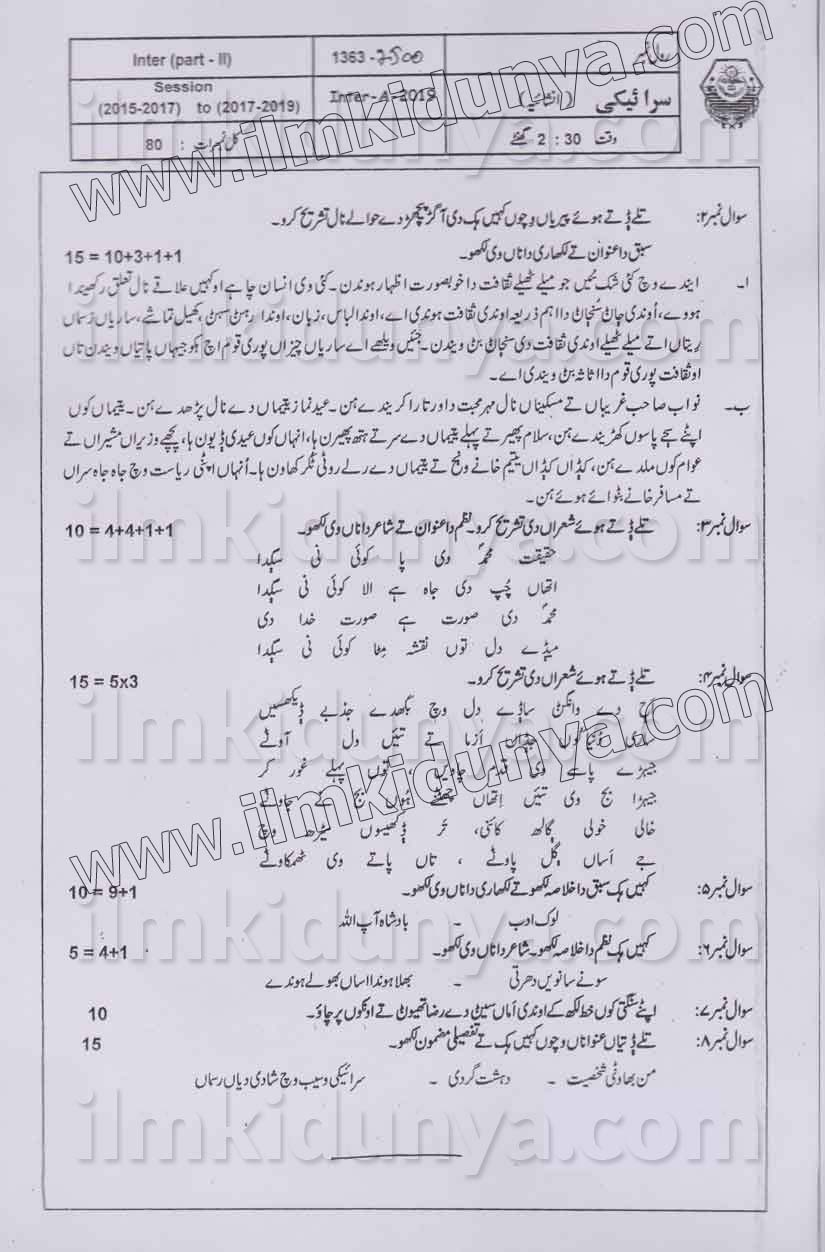 Inter (part - II)
1363 - 7500
رول نمبر
Session
(2015-2017) to (2017-2019)
Inter-A-2019
سرائیکی (انشائیہ)
کل نمبرات : 80
وقت 2 : 30 گھنٹے
سوال نمبر ۲: تلے ݙتے ہوئے پیریاں وچوں کہیں ہک دی اگڑ پچھڑ دے حوالے نال تشریح کرو۔
سبق دا عنوان تے لکھاری دا ناں وی لکھو۔ 15 = 10+3+1+1
ا۔ ایندے وچ کئی شک نئیں جو میلے ٹھیلے ثقافت دا خوبصورت اظہار ہوندن۔ کئی وی انسان چاہے او کہیں علاقے نال تعلق رکھیندا
ہووے، اوندی ڄاݨ سُنڄاݨ دا اہم ذریعہ اوندی ثقافت ہوندی اے، اوندا لباس، زبان، اوندا رہݨ سہݨ، کھیل تماشے، ساریاں رسماں
ریتاں اتے میلے ٹھیلے اوندی ثقافت دی سنڄاݨ بݨ ویندن۔ جئیں ویلھے اے ساریاں چیزاں پوری قوم اچ ہکو جیہاں پاتیاں ویندن تاں
او ثقافت پوری قوم دا اثاثہ بݨ ویندی اے۔
ب۔ نواب صاحب غریباں تے مسکیناں نال مہر محبت دا ورتارا کریندے ہن۔ عید نماز یتیماں دے نال پڑھدے ہن۔ یتیماں کوں
اپݨے سجے پاسوں کھڑیندے ہن، سلام پھیر تے پہلے یتیماں دے سر تے ہتھ پھیرن ہا، انہاں کوں عیدی ݙیون ہا، پچھے وزیراں مشیراں تے
عوام کوں ملدے ہن، کݙاں کݙاں یتیم خانے ونج تے یتیماں دے رلے روٹی ٹکر کھاون ہا۔ اُنہاں اپݨی ریاست وچ جاہ جاہ سراں
تے مسافر خانے بݨوائے ہوئے ہن۔
سوال نمبر ۳: تلے ݙتے ہوئے شعراں دی تشریح کرو۔ نظم دا عنوان تے شاعر دا ناں وی لکھو۔ 10 = 4+4+1+1
حقیقت محمدؐ دی پا کوئی نی سڳدا
اتھاں چُپ دی جاہ ہے الا کوئی نی سڳدا
محمدؐ دی صورت ہے صورت خدا دی
میݙے دل توں نقشہ مِٹا کوئی نی سڳدا
سوال نمبر ۴: تلے ݙتے ہوئے شعراں دی تشریح کرو۔ 15 = 5x3
اج دے وانگݨ ساݙے دل وچ ٻکھدے جذبے ݙیکھسیں
ساری دُنیا کوں جݙاں آزما تے تئیں دل آوݨے
جیہڑے پاسے وی قدم چاویں، توں پہلے غور کر
جیہڑا بچ وی تئیں اتھاں چھٹݨے ہوں بچ تے جاوݨے
خالی خولی ڳالھ کائنی، تر ݙکھیسوں میڑھ وچ
جے اساں ڳل پاوݨے، تاں پاتے وی ٹھمکاوݨے
سوال نمبر ۵: کہیں ہک سبق دا خلاصہ لکھو تے لکھاری دا ناں وی لکھو۔ 10 = 9+1
لوک ادب ۔ بادشاہ آپ اللہ
سوال نمبر ۶: کہیں ہک نظم دا خلاصہ لکھو۔ شاعر دا ناں وی لکھو۔ 5 = 4+1
سونے سانویں دھرتی ۔ بھلا ہوندا اساں بھولے ہوندے
سوال نمبر ۷: اپݨے سنگتی کوں خط لکھ کے اوندی اماں سیݨ دے رضا تھیوݨ تے اونکوں پرچاؤ۔ 10
سوال نمبر ۸: تلے ݙتیاں عنواناں وچوں کہیں ہک تے تفصیلی مضمون لکھو۔ 15
من بھاوݨی شخصیت ۔ دہشت گردی ۔ سرائیکی وسیب وچ شادی دیاں رسماں
www.ilmkidunya.com
www.ilmkidunya.com
ilmkidunya.com
ilmkidunya.com
ilmkidunya.com
ilmkidunya.com
ilmkidunya.com
ilmkidunya.com